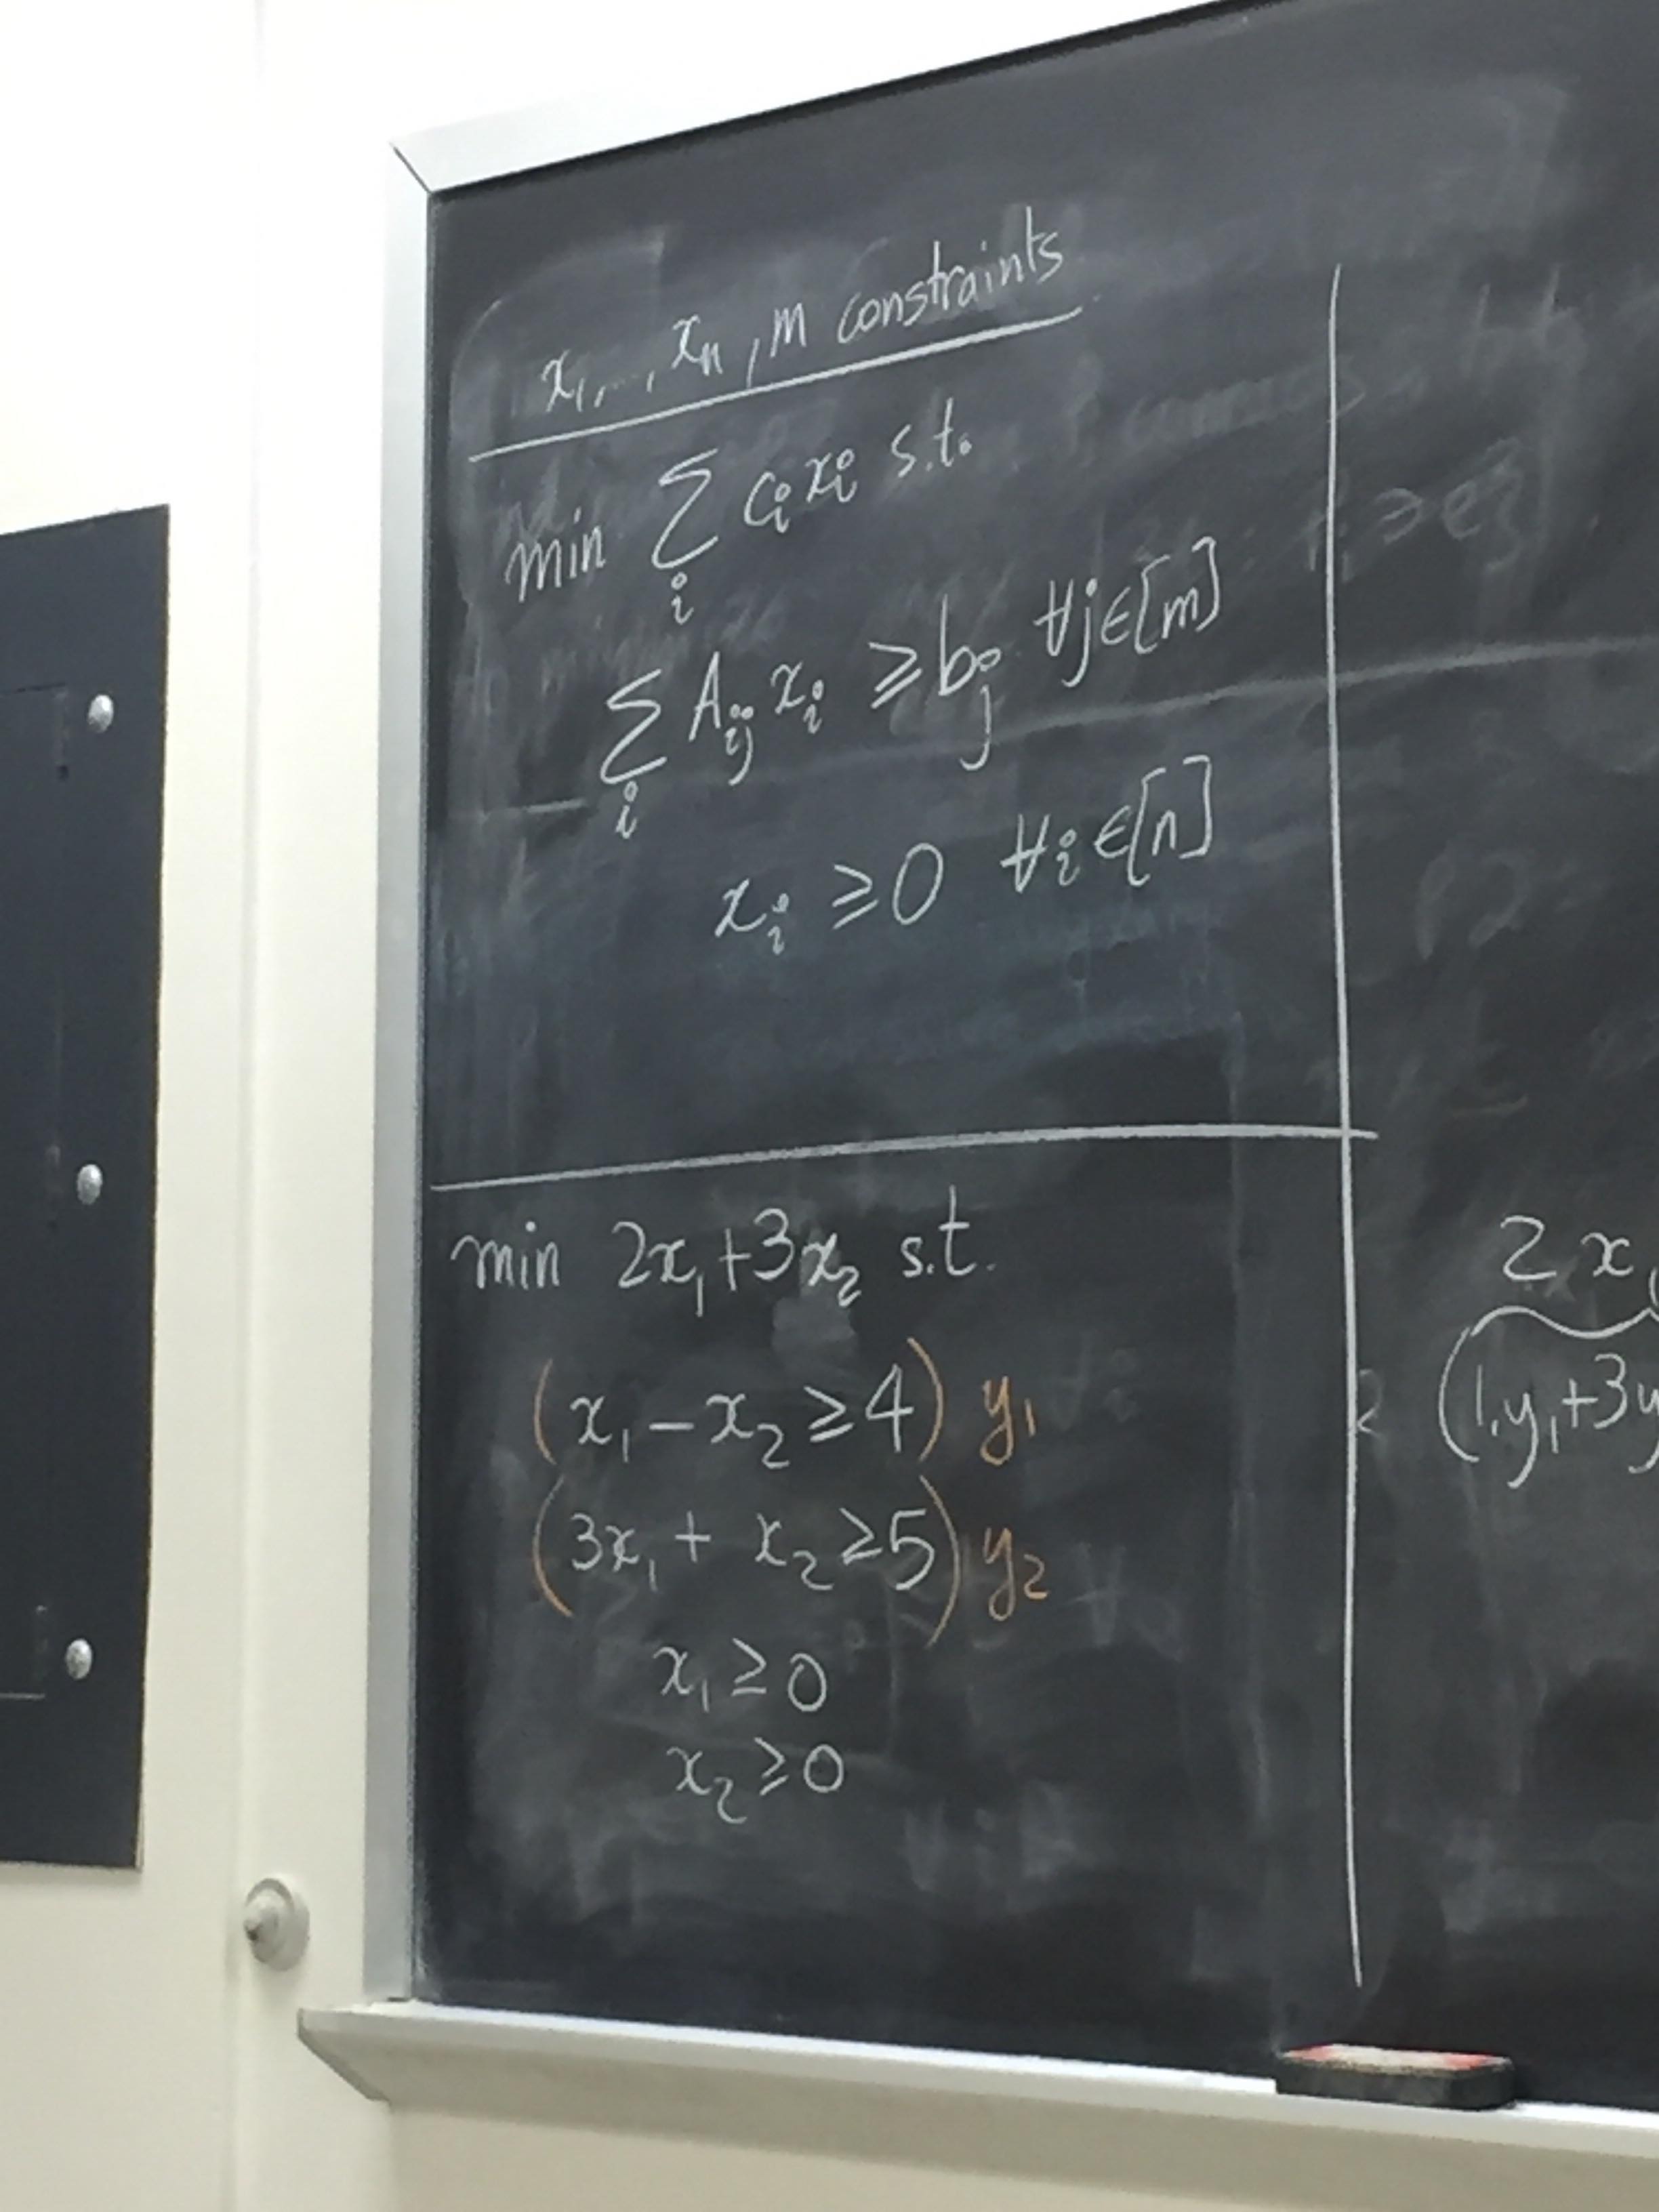 x₁, .., xₙ, m constraints
min ∑ᵢ cᵢ xᵢ s.t.
∑ᵢ Aᵢⱼ xᵢ ≥ bⱼ ∀j∈[m]
xᵢ ≥ 0 ∀i∈[n]
min 2x₁+3x₂ s.t.
(x₁ − x₂ ≥ 4) y₁
(3x₁ + x₂ ≥ 5) y₂
x₁ ≥ 0
x₂ ≥ 0
2 x₁
(1.y₁+3y